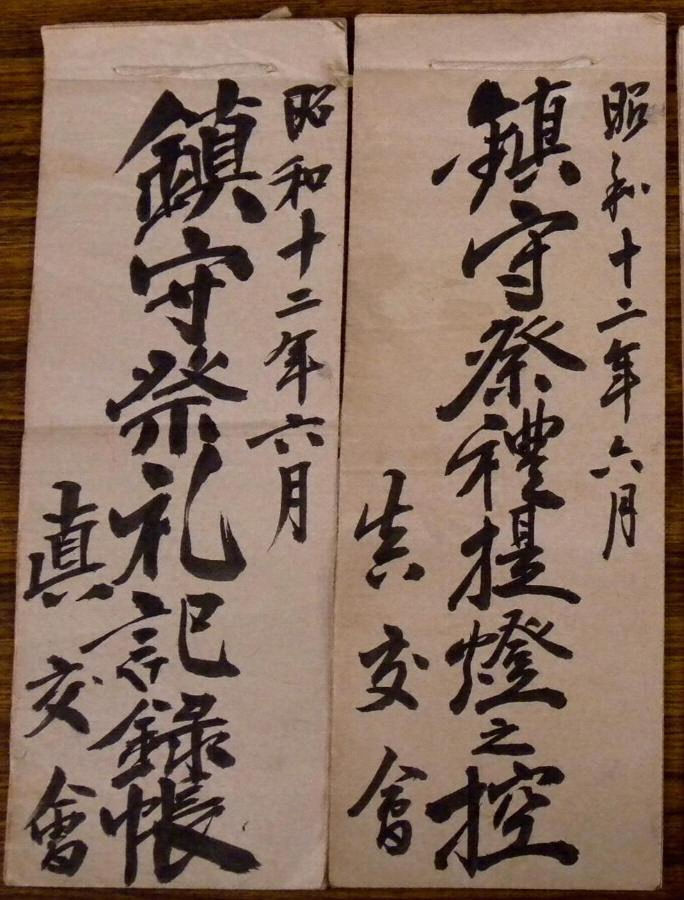 昭和十二年六月
鎮守祭禮提燈之控
真交會
昭和十二年六月
鎮守祭礼記録帳
眞交會